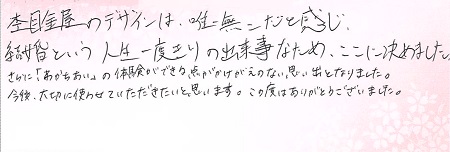 杢目金屋のデザインは、唯一無二だと感じ、
結婚という人生一度きりの出来事なため、ここに決めました。
さらに「わかちあい」の体験ができる点がかけがえのない思い出となりました。
今後、大切に使わせていただきたいと思います。この度はありがとうございました。